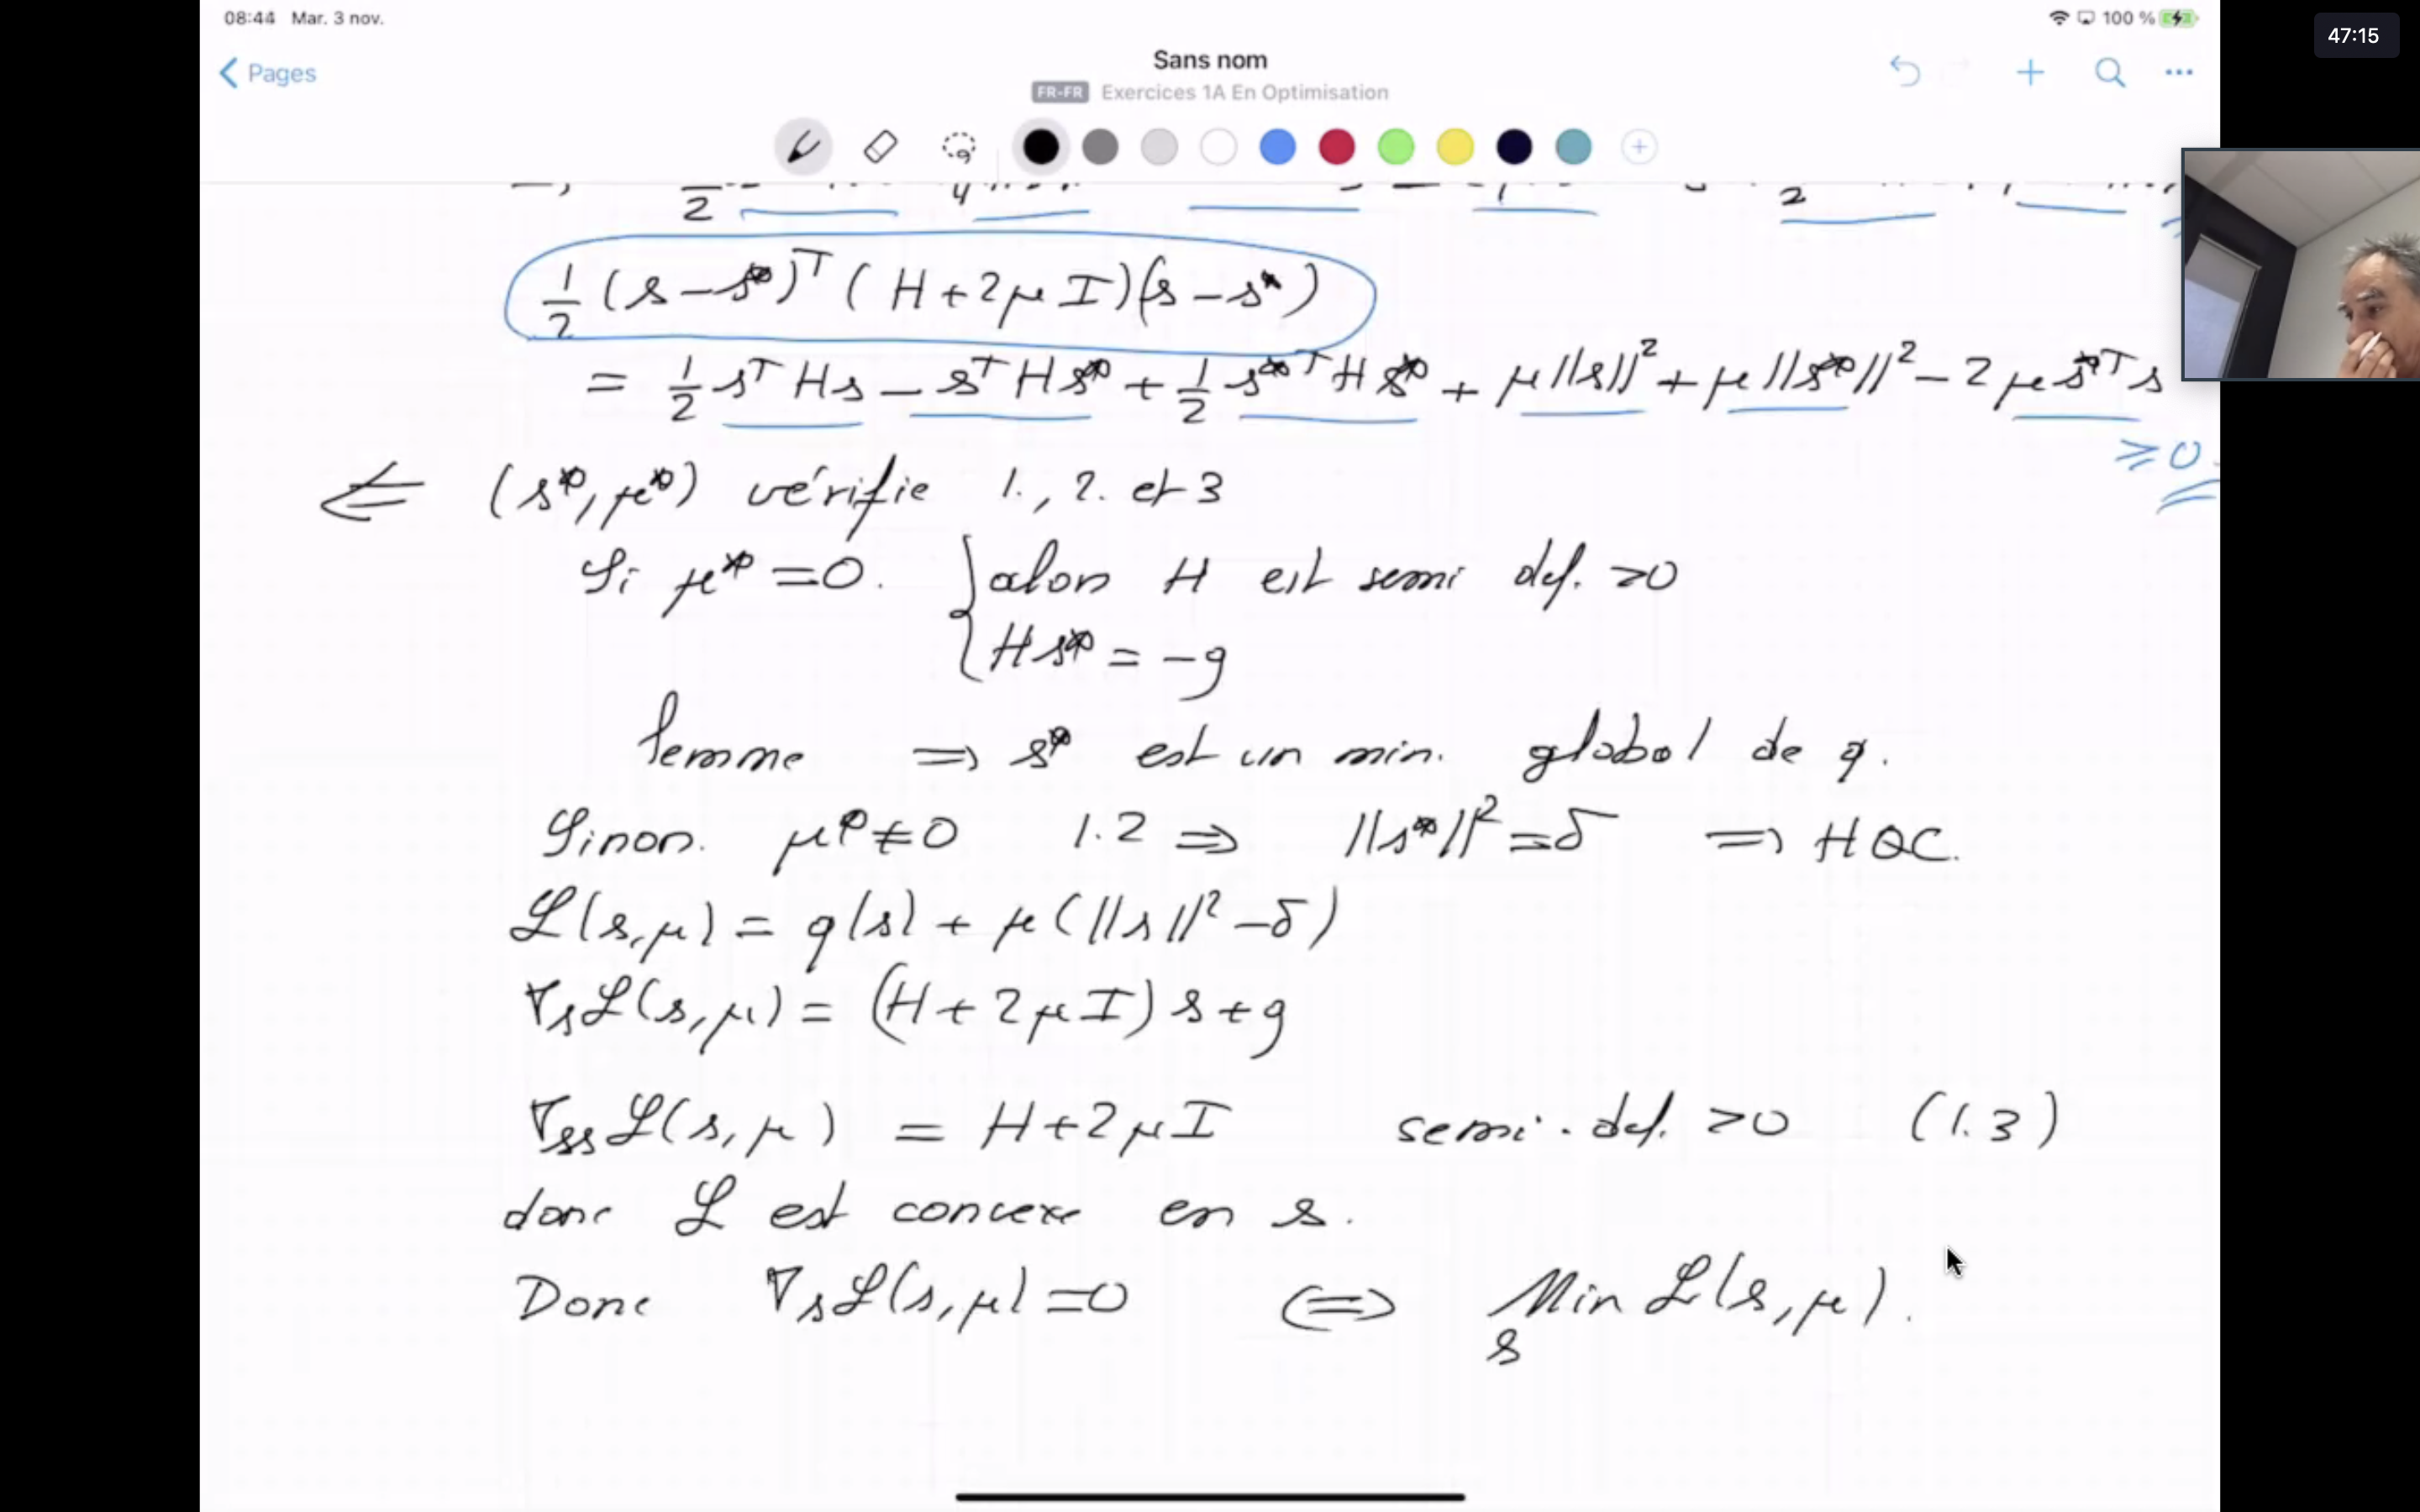 08:44 Mar. 3 nov.
100 %
47:15
Pages
Sans nom
FR-FR Exercices 1A En Optimisation
1/2 (s - s*)^T (H + 2μI)(s - s*)
= 1/2 s^T Hs - s^T Hs* + 1/2 s*^T H s* + μ||s||² + μ||s*||² - 2μs*^T s
≥0.
⇐ (s*, μ*) vérifie 1., 2. et 3
Si μ* = 0. { alors H est semi def. >0
Hs* = -g
lemme ⇒ s* est un min. global de q.
Sinon. μ* ≠ 0 1.2 ⇒ ||s*||² = δ ⇒ HQC.
ℒ(s,μ) = q(s) + μ(||s||² - δ)
∇sℒ(s,μ) = (H + 2μI) s + g
∇ssℒ(s,μ) = H + 2μI semi. def. >0 (1.3)
donc ℒ est convexe en s.
Donc ∇sℒ(s,μ) = 0 ⇔ Min ℒ(s,μ).
s